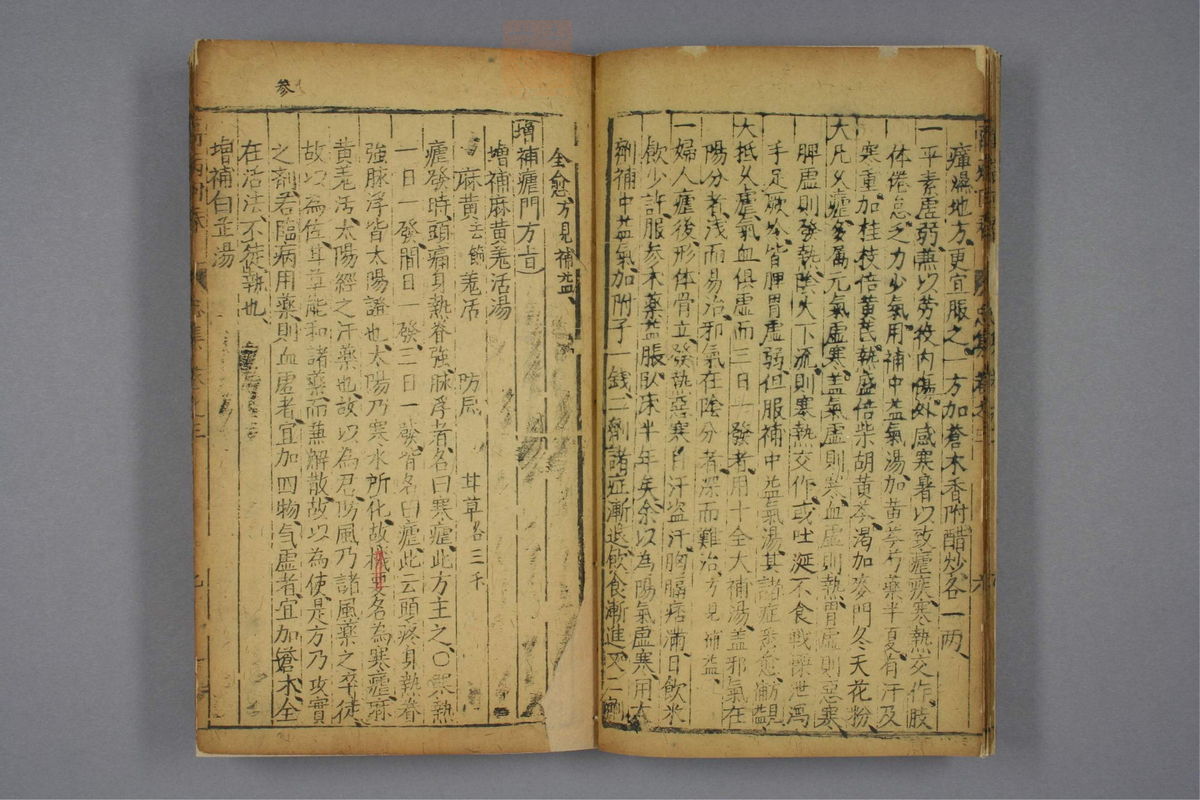 瘴濕地方、更宜服之、一方加蒼朮香附醋炒各一两、
一平素虛弱、兼以劳役内傷外感寒暑以致瘧疾、寒熱交作、肢
体倦怠、乏力少氣用補中益氣湯、加黄芩芍藥半夏、有汗及
寒重、加桂枝倍黄芪、熱盛倍柴胡黄芩、渴加麥門冬天花粉、
大凡久瘧多属元氣虛寒、盖氣虛則寒、血虛則熱、胃虛則惡寒
脾虛則發熱、陰火下流則寒熱交作、或吐涎不食戰慄泄瀉
手足厥冷皆脾胃虛弱、但服補中益氣湯、其諸症悉愈
大抵久瘧氣血俱虛而三日一發者、用十全大補湯、盖邪氣在
陽分者、浅而易治、邪氣在陰分者、深而難治、方見補益、
一婦人瘧後形体骨立、發熱惡寒、自汗盗汗、胸膈痞滿、日飲米
飲少許、服参朮藥益脹、臥床半年矣、余以為陽氣虛寒、用大
劑補中益氣、加附子一錢、二劑諸症漸退、飲食漸進、又二劑
全愈、方見補益、
増補瘧門方旨
増補麻黄羗活湯
麻黄去節 羗活 防風 甘草各三
瘧發時、頭痛身熱脊強、脉浮者、名曰寒瘧、此方主之、○寒熱
一日一發、間日一發、三日一發、皆名曰瘧、此云頭疼身熱脊
強脉浮皆太陽證也、太陽乃寒水所化、故機要名為寒瘧、麻
黄羗活、太陽經之汗藥也、故以為君、防風乃諸風藥之卒徒、
故以為佐、甘草能和諸藥、而兼解散、故以為使、是方乃攻實
之剤、君臨病用藥、則血虛者、宜加四物、气虛者、宜加蒼朮、全
在活法、不徒執也、
増補白芷湯
参